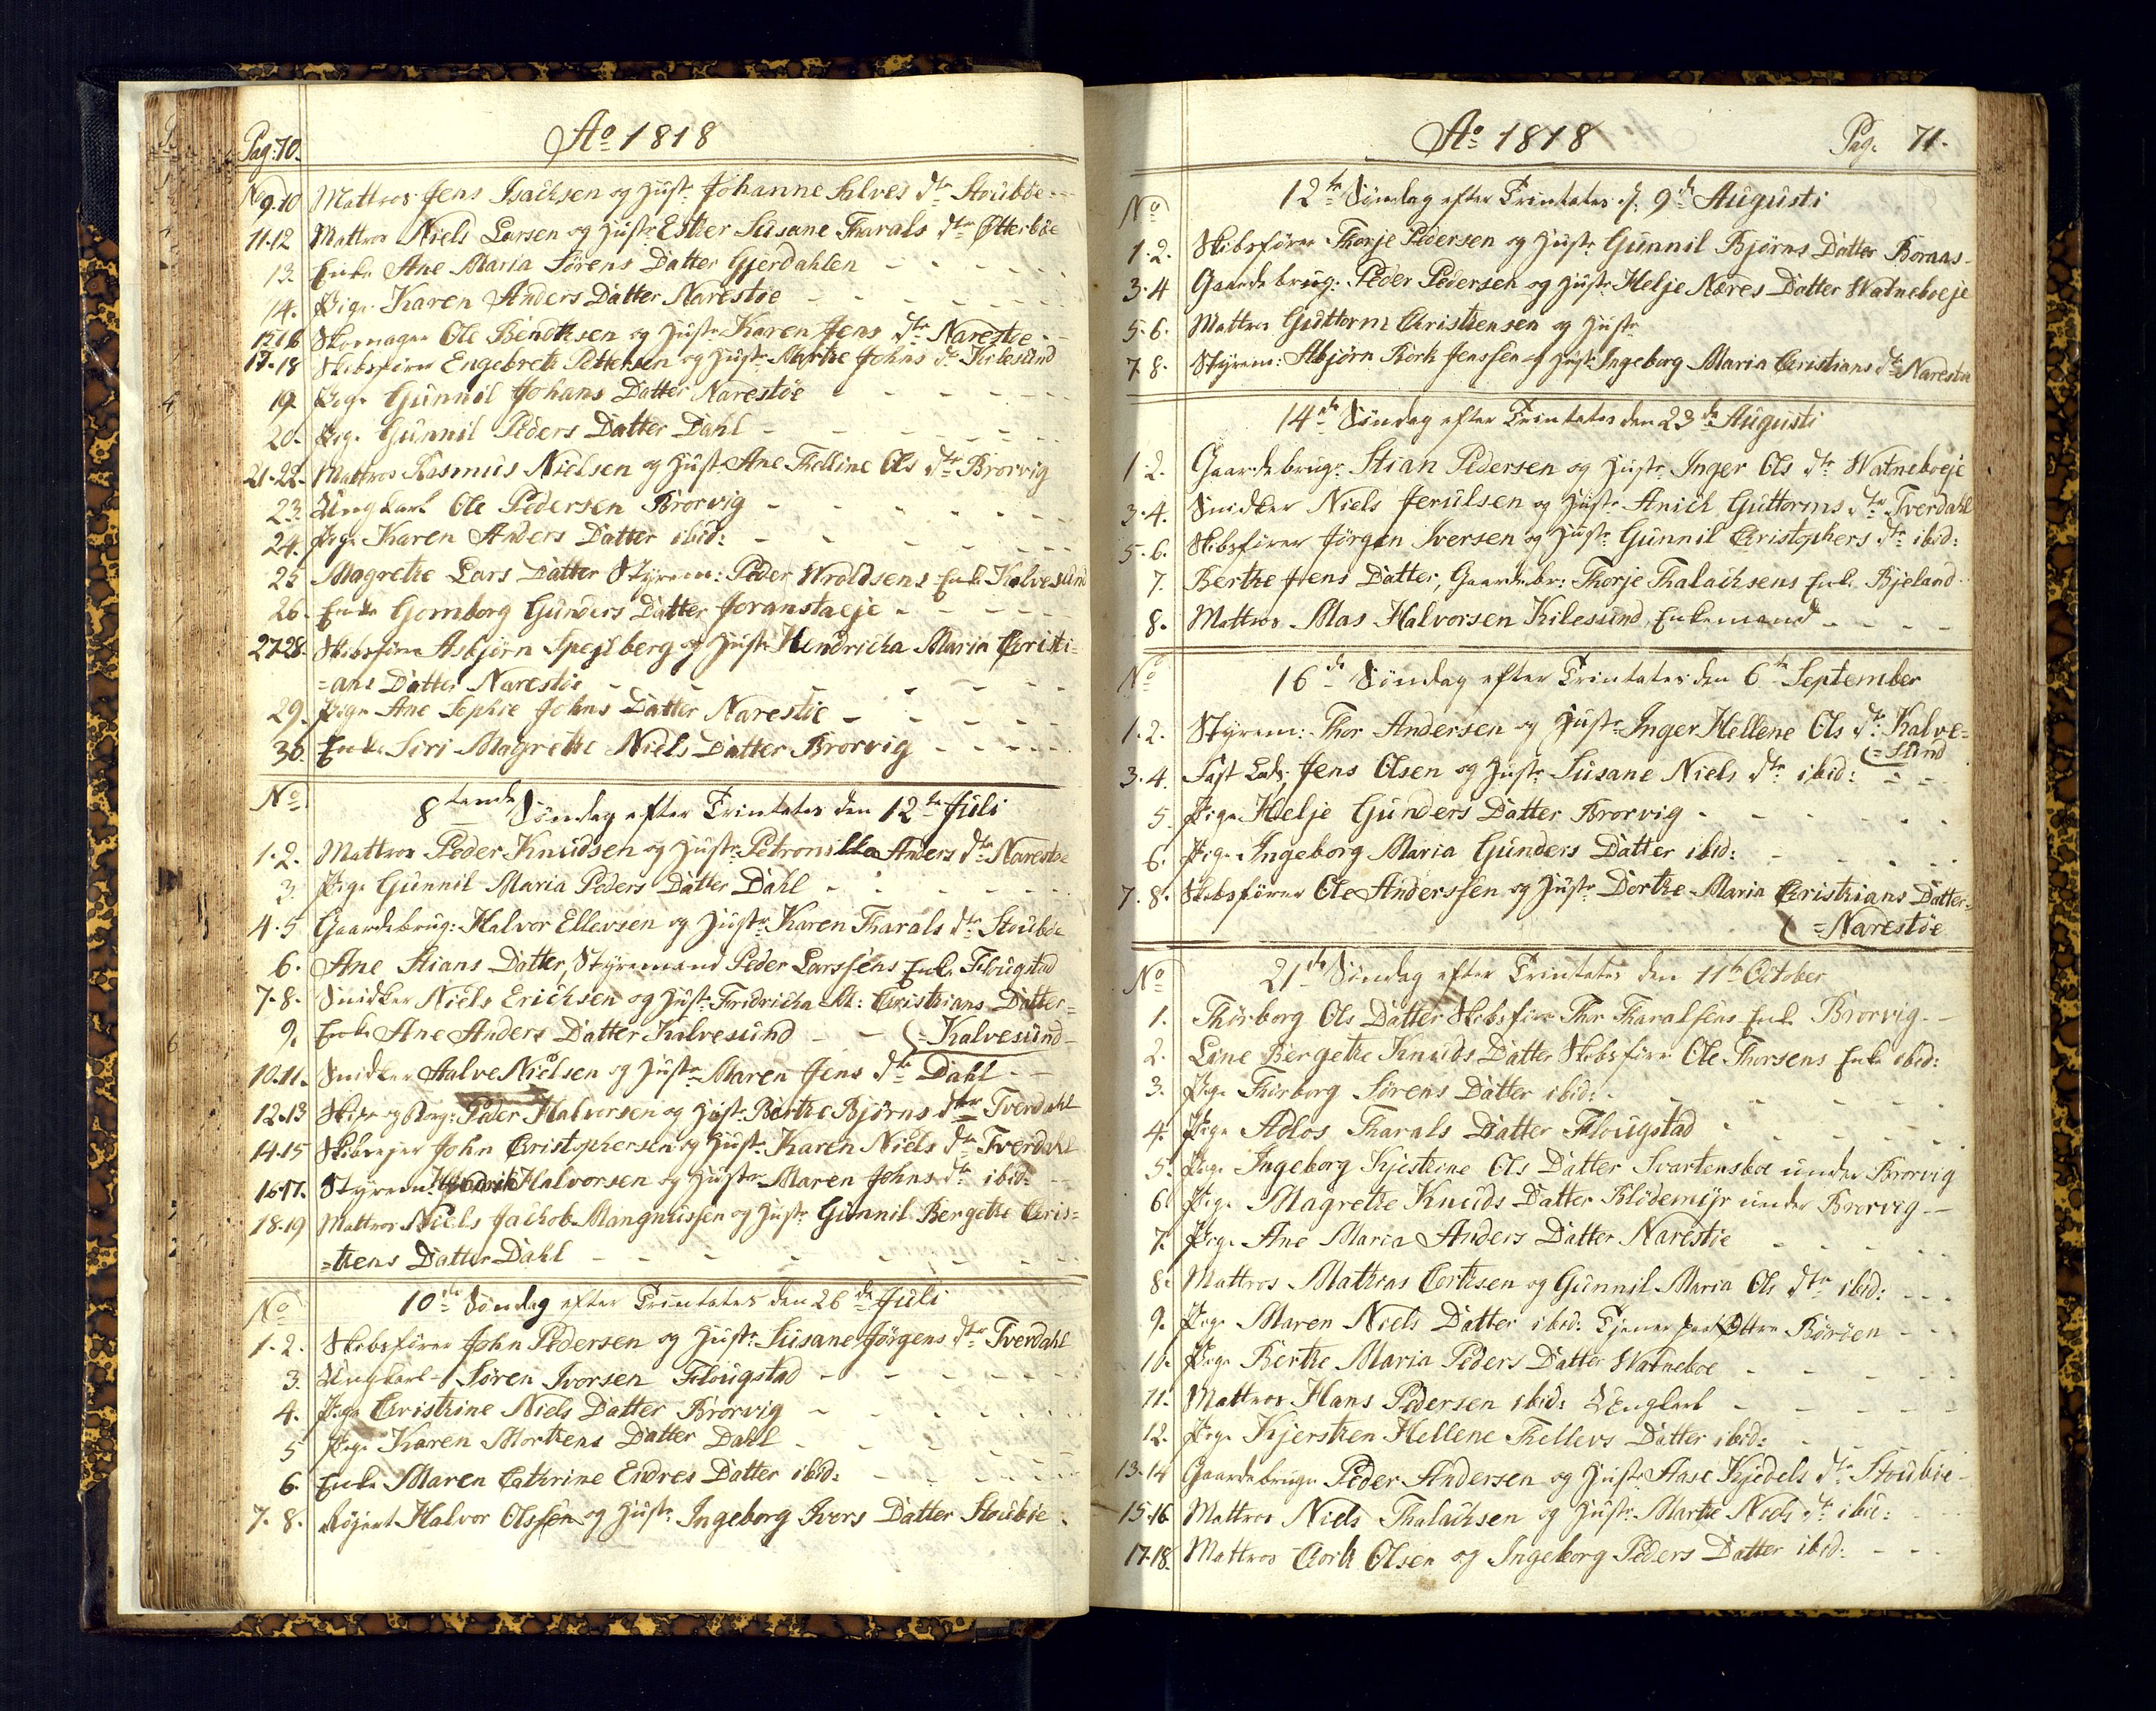 Pag: 70.
Ao 1818
No 9.10 Mattros Jens Isachsen og Hustr. Johanne Salves dtr Stoubøe
11.12 Mattros Niels Larsen og Hustr Ester Susane Tharals dtr Otterbøe
13. Enke Ane Maria Sørens Datter Gjerdahlen
14. Pige Karen Anders Datter Narestøe
15.16 Skomager Ole Bendtsen og Hustr. Karen Jens dtr Narestøe
17.18 Skibsfører Engebreth Pettersen og Hustr. Marthe Johns dr. Kilesund
19 Pige Gunnil Johans Datter Narestøe
20. Pige Gunnil Peders Datter Dahl
21.22. Mattros Rasmus Nielsen og Hustr Ane Thelline Ols dtr Brorvig
23. Ungkarl Ole Pedersen Brorvig
24. Pige Karen Anders Datter ibid:
25 Magrethe Lars Datter Styrem: Peder Wroldsens Enk. Kalvesund
26. Enke Gomborg Gunders Datter Joranstaeje
27.28. Skibsfører Asbjørn Spejlberg og Hustr Hendricha Maria Christi=
=ans Datter Narestøe
29. Pige Ane Sophie Johns Datter Narestøe
30. Enke Siri Magrethe Niels Datter Brorvig
No 8tende Søndag efter Trinitates den 12te Juli
1.2. Mattros Peder Knudsen og Hustr. Petronilla Anders dtr Narestøe
3. Pige Gunnil Maria Peders Datter Dahl
4.5 Gaardebrug: Halvor Ellevsen og Hustr. Karen Tharals dtr Stoubøe
6. Ane Stians Datter, Styremand Peder Larssens Enk. Flougstad
7.8. Snidker Niels Erichsen og Hustr. Fridricha M: Christians Datter=
9. Enke Ane Anders Datter Kalvesund =Kalvesund
10.11. Snidker Halve Nielsen og Hustr. Maren Jens dtr Dahl
12.13 Skipr og Borg: Peder Halvorsen og Hustr. Berthe Bjørns dtr Tverdahl
14.15 Skibsejer John Christophersen og Hustr. Karen Niels dtr Tverdahl
16.17. Styrem. Hendrik Halvorsen og Hustr. Maren Johns dr ibid:
18.19 Mattros Niels Jachob Mangnussen og Hustr. Gunnil Bergethe Chris=
=thens Datter Dahl
No 10de Søndag efter Trinitates den 26de Juli
1.2. Skibsfører John Pedersen og Hustr. Susane Jørgens dtr Tverdahl
3. Ungkarl Søren Iversen Flougstad
4. Pige Christhine Niels Datter Brorvig
5 Pige Karen Morthens Datter Dahl
6. Enke Maren Cathrine Endres Datter ibid:
7.8. Røjert Halvor Olssen og Hustr. Ingeborg Ivers Datter Stoubøe
Ao 1818 Pag. 71.
No 12te Søndag efter Trinitates d. 9de Augusti
1.2. Skibsfører Thorje Pedersen og Hustr. Gunnil Bjørns Datter Boraas
3.4 Gaardebrug. Peder Pedersen og Hustr. Helje Næres Datter Watneboeje
5.6. Mattros Guttorm Christhensen og Hustr
7.8. Styrem: Abjørn Børk Jenssen og Hustr. Ingeborg Maria Christians dtr Narestøe
14de Søndag efter Trinitates den 23de Augusti
1.2. Gaardebrug. Stian Pedersen og Hustr. Inger Ols dtr Watneboeje
3.4. Snidker Niels Jerulsen og Hustr. Anich Guttorms dtr Tverdahl
5.6. Skibsfører Jørgen Iversen og Hustr. Gunnil Christophers dtr ibid:
7. Berthe Jens Datter, Gaardebr: Thorje Thalachsens Enk. Bjeland
8. Mattros Mas Halvorsen Kilesund, Enkemand
No 16de Søndag efter Trinitates den 6te September
1.2. Styrem: Thor Andersen og Hustr. Inger Hellene Ols dr. Kalve=
=sund
3.4. Fast Lods Jens Olsen og Hustr. Susane Niels dtr ibid:
5. Pige Helje Gunders Datter Brorvig
6. Pige Ingeborg Maria Gunders Datter ibid:
7.8. Skibsfører Ole Anderssen og Hustr. Dorthe Maria Christhians Datter=
=Narestøe
No 21de Søndag efter Trinitates den 11te October
1. Thorborg Ols Datter Skibsfører Thor Tharalsens Enk. Brorvig
2. Line Bergethe Knuds Datter Skibsfører Ole Thorsens Enke ibid:
3. Pige Thorborg Sørens Datter ibid:
4. Pige Adlos Tharals Datter Flougstad
5. Pige Ingeborg Kjisthine Ols Datter Svartensboe under Brorvig
6. Pige Magrethe Knuds Datter Blidemyr under Brorvig
7. Pige Ane Maria Anders Datter Narestøe
8. Mattros Mathias Corthsen og Gunnil Maria Ols dtr ibid:
9. Pige Maren Niels Datter ibid: Tjener paa Ottra Børøen
10. Pige Berthe Maria Peders Datter Watneboe
11. Mattros Hans Pedersen ibid: Ungkarl
12. Pige Kjersthen Hellene Thellevs Datter ibid:
13.14 Gaardebruger Peder Andersen og Hustr. Aase Kjedels dtr Stoubøe
15.16 Mattros Niels Thalachsen og Hustr. Marthe Niels dtr ibid:
17.18. Mattros Corth Olsen og Ingeborg Peders Datter ibid: